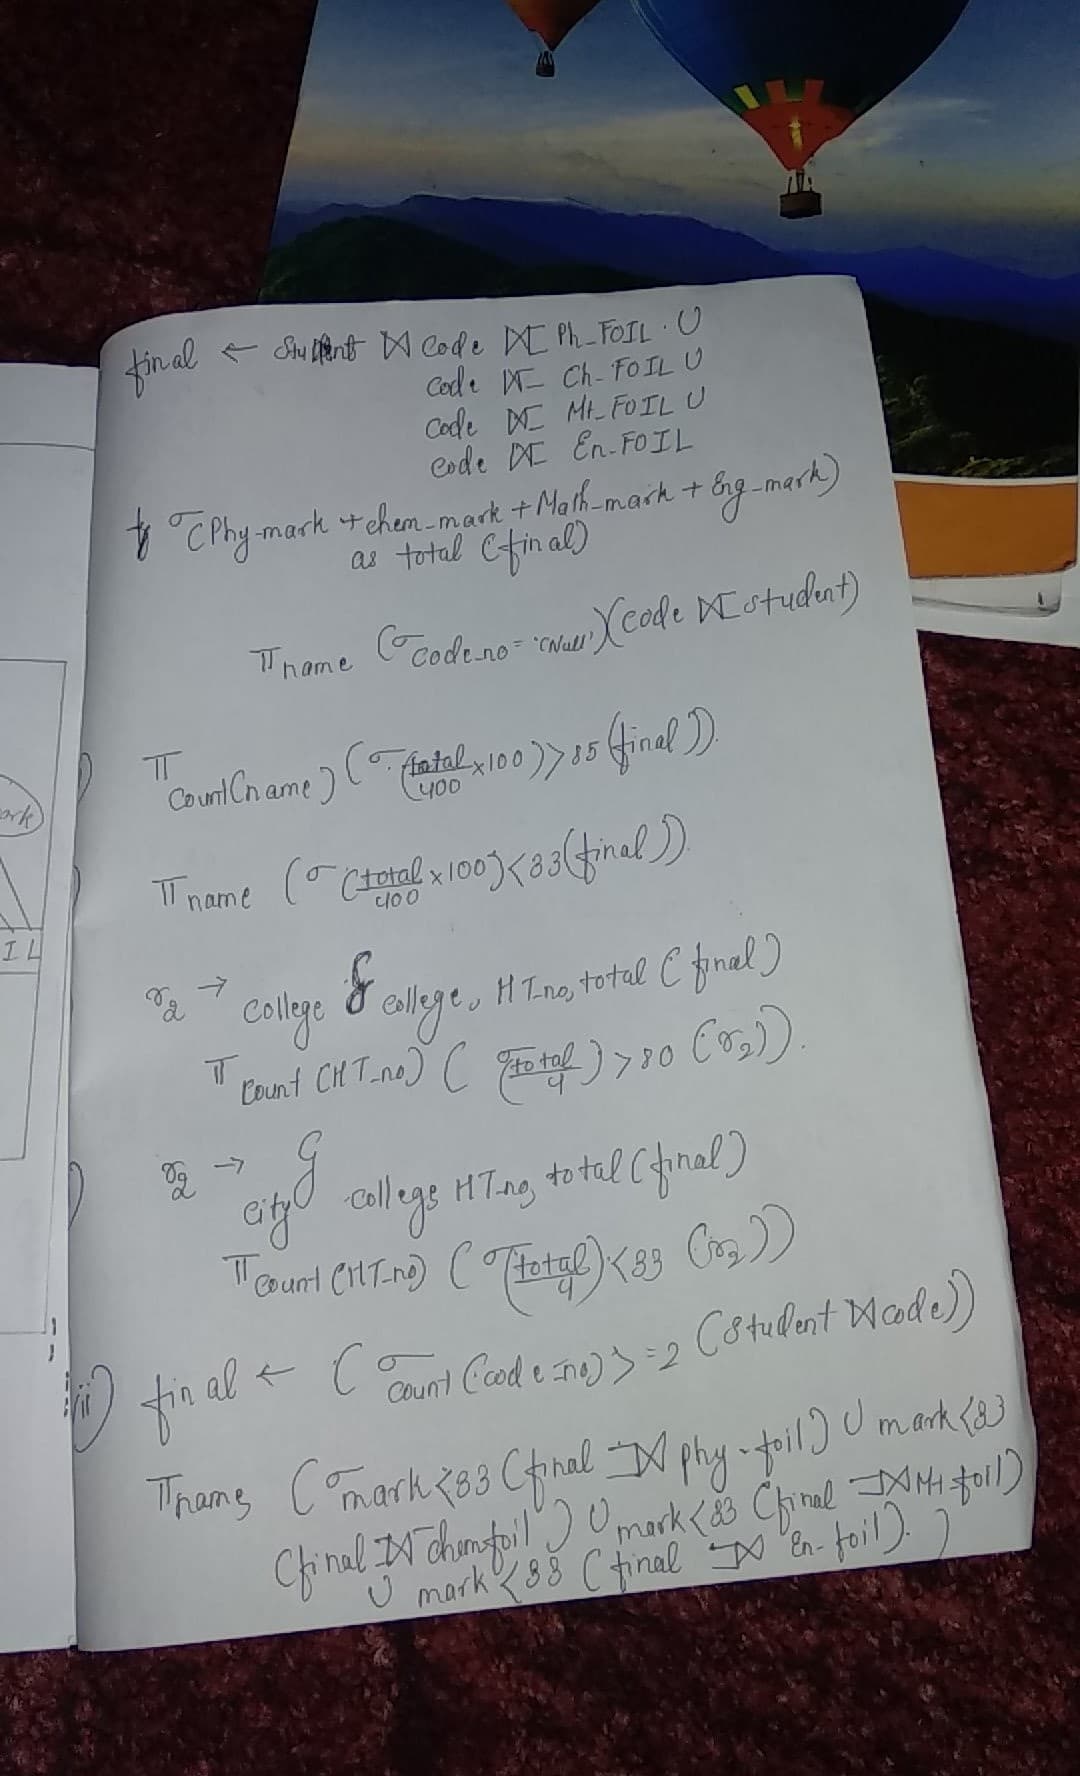 final ← Student ⋈ Code ⟖ Ph_FOIL . U
code ⟖ Ch_FOIL U
Code ⟖ Mt_FOIL U
code ⟖ En_FOIL
σ (Phy-mark + chem_mark + Math_mark + Eng-mark)
as total (final)
π name (σ code_no = 'Null') (code ⟖ student)
π count(name) (σ (total/400 x100)) > 85 (final)).
π name (σ (total/400 x100) < 33 (final)).
r2 → college G college, HT-no, total (final)
π count (HT_no) ( σ total/4 ) > 80 (r2)).
r2 → city G college HT-no, total (final)
π count (HT-no) ( σ (total/4) < 33 (r2))
ii) final ← ( σ count (code_no) > = 2 (Student ⋈ code))
π name ( σ mark < 33 (final ⟕ phy-foil) U mark < 33
(final ⟕ chem foil ) U mark < 33 (final ⟕ Mt-foil)
U mark < 33 ( final ⟕ En-foil). )
ark
IL